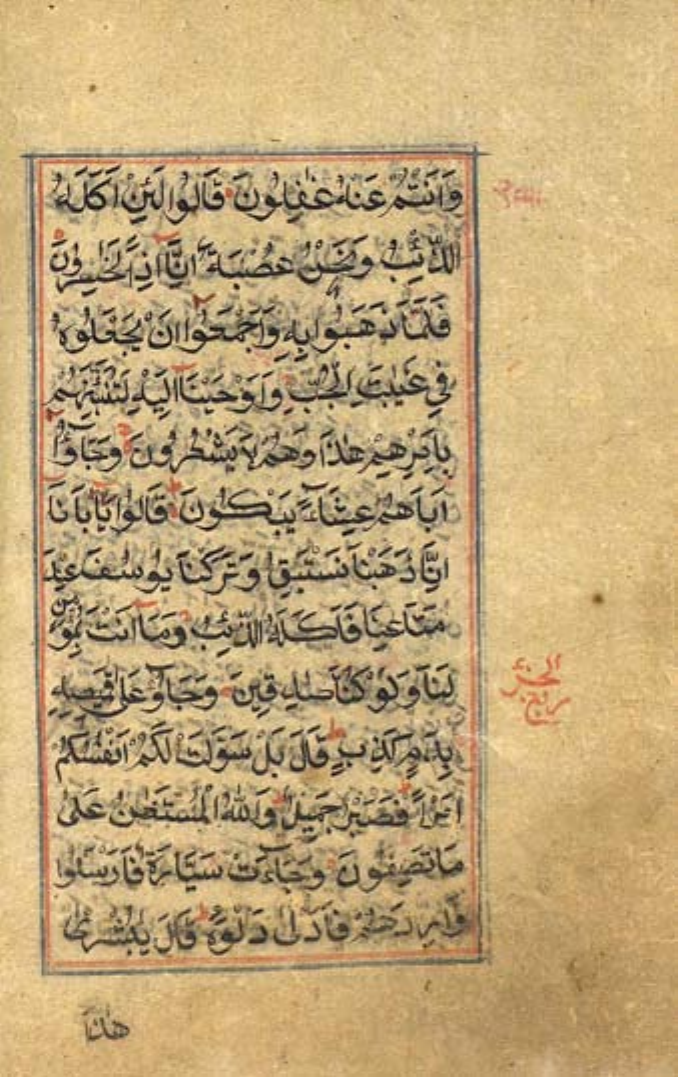 وَاَنْتُمْ عَنْهُ غٰفِلُونَ قَالُوا لَئِنْ اَكَلَهُ
الذِّئْبُ وَنَحْنُ عُصْبَةٌ اِنَّا اِذًا لَخٰسِرُونَ
فَلَمَّا ذَهَبُوا بِهٖ وَاَجْمَعُوا اَنْ يَجْعَلُوهُ
فِي غَيٰبَتِ الْجُبِّ وَاَوْحَيْنَا اِلَيْهِ لَتُنَبِّئَنَّهُمْ
بِاَمْرِهِمْ هٰذَا وَهُمْ لَا يَشْعُرُونَ وَجَاؤُا
اَبَاهُمْ عِشَاءً يَبْكُونَ قَالُوا يَا اَبَانَا
اِنَّا ذَهَبْنَا نَسْتَبِقُ وَتَرَكْنَا يُوسُفَ عِنْدَ
مَتَاعِنَا فَاَكَلَهُ الذِّئْبُ وَمَا اَنْتَ بِمُؤْمِنٍ
لَنَا وَلَوْ كُنَّا صٰدِقِينَ وَجَاؤُ عَلٰى قَمِيصِهٖ
بِدَمٍ كَذِبٍ قَالَ بَلْ سَوَّلَتْ لَكُمْ اَنْفُسُكُمْ
اَمْرًا فَصَبْرٌ جَمِيلٌ وَاللّٰهُ الْمُسْتَعٰنُ عَلٰى
مَا تَصِفُونَ وَجَاءَتْ سَيَّارَةٌ فَاَرْسَلُوا
وَارِدَهُمْ فَاَدْلٰى دَلْوَهُ قَالَ يٰبُشْرٰى
هٰذَا
الجزء
ربع